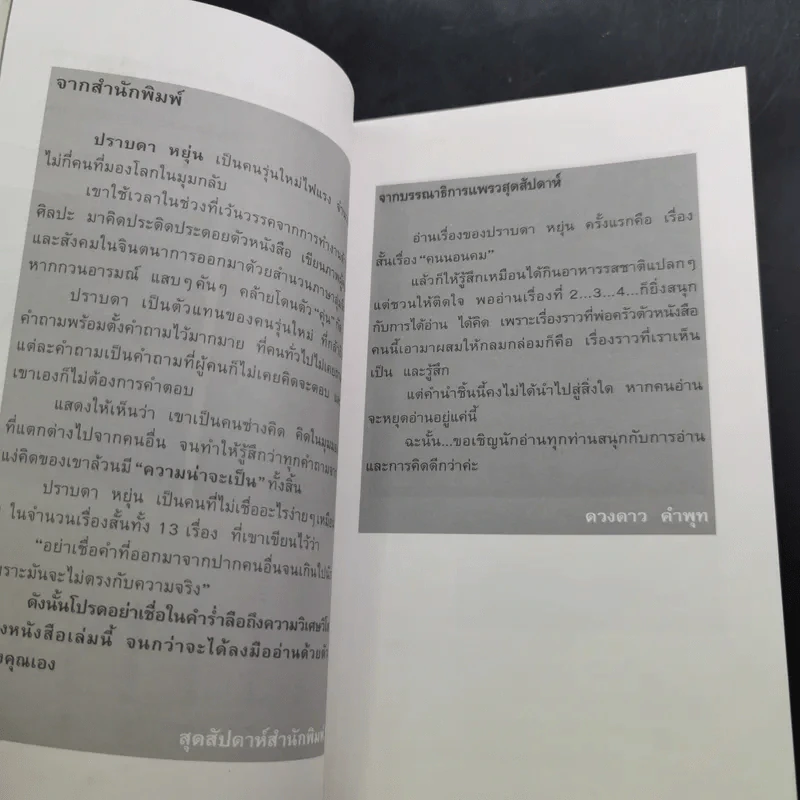 จากสำนักพิมพ์
ปราบดา หยุ่น เป็นคนรุ่นใหม่ไฟแรง
ไม่กี่คนที่มองโลกในมุมกลับ
เขาใช้เวลาในช่วงที่เว้นวรรคจากการทำงาน
ศิลปะ มาคิดประดิดประดอยตัวหนังสือ
และสังคมในจินตนาการออกมาด้วยสำนวนภาษา
หากกวนอารมณ์ แสบๆคันๆ คล้ายโดนตัว
ปราบดา เป็นตัวแทนของคนรุ่นใหม่
คำถามพร้อมตั้งคำถามไว้มากมาย ที่คนทั่วไปไม่เคย
แต่ละคำถามเป็นคำถามที่ผู้คนก็ไม่เคยคิดจะตอบ
เขาเองก็ไม่ต้องการคำตอบ
แสดงให้เห็นว่า เขาเป็นคนช่างคิด คิดในมุม
ที่แตกต่างไปจากคนอื่น จนทำให้รู้สึกว่าทุกคำถาม
แง่คิดของเขาล้วนมี "ความน่าจะเป็น" ทั้งสิ้น
ปราบดา หยุ่น เป็นคนที่ไม่เชื่ออะไรง่ายๆ
ในจำนวนเรื่องสั้นทั้ง 13 เรื่อง ที่เขาเขียนไว้ว่า
"อย่าเชื่อคำที่ออกมาจากปากคนอื่นจนเกินไป
เพราะมันจะไม่ตรงกับความจริง"
ดังนั้นโปรดอย่าเชื่อในคำร่ำลือถึงความวิเศษ
หนังสือเล่มนี้ จนกว่าจะได้ลงมืออ่านด้วย
คุณเอง
สุดสัปดาห์สำนักพิมพ์
จากบรรณาธิการแพรวสุดสัปดาห์
อ่านเรื่องของปราบดา หยุ่น ครั้งแรกคือ เรื่อง
สั้นเรื่อง "คนนอนคม"
แล้วก็ให้รู้สึกเหมือนได้กินอาหารรสชาติแปลกๆ
แต่ชวนให้ติดใจ พออ่านเรื่องที่ 2...3...4...ก็ยิ่งสนุก
กับการได้อ่าน ได้คิด เพราะเรื่องราวที่พ่อครัวตัวหนังสือ
คนนี้เอามาผสมให้กลมกล่อมก็คือ เรื่องราวที่เราเห็น
เป็น และรู้สึก
แต่คำนำชิ้นนี้คงไม่ได้นำไปสู่สิ่งใด หากคนอ่าน
จะหยุดอ่านอยู่แค่นี้
ฉะนั้น...ขอเชิญนักอ่านทุกท่านสนุกกับการอ่าน
และการคิดดีกว่าค่ะ
ดวงดาว คำพุท